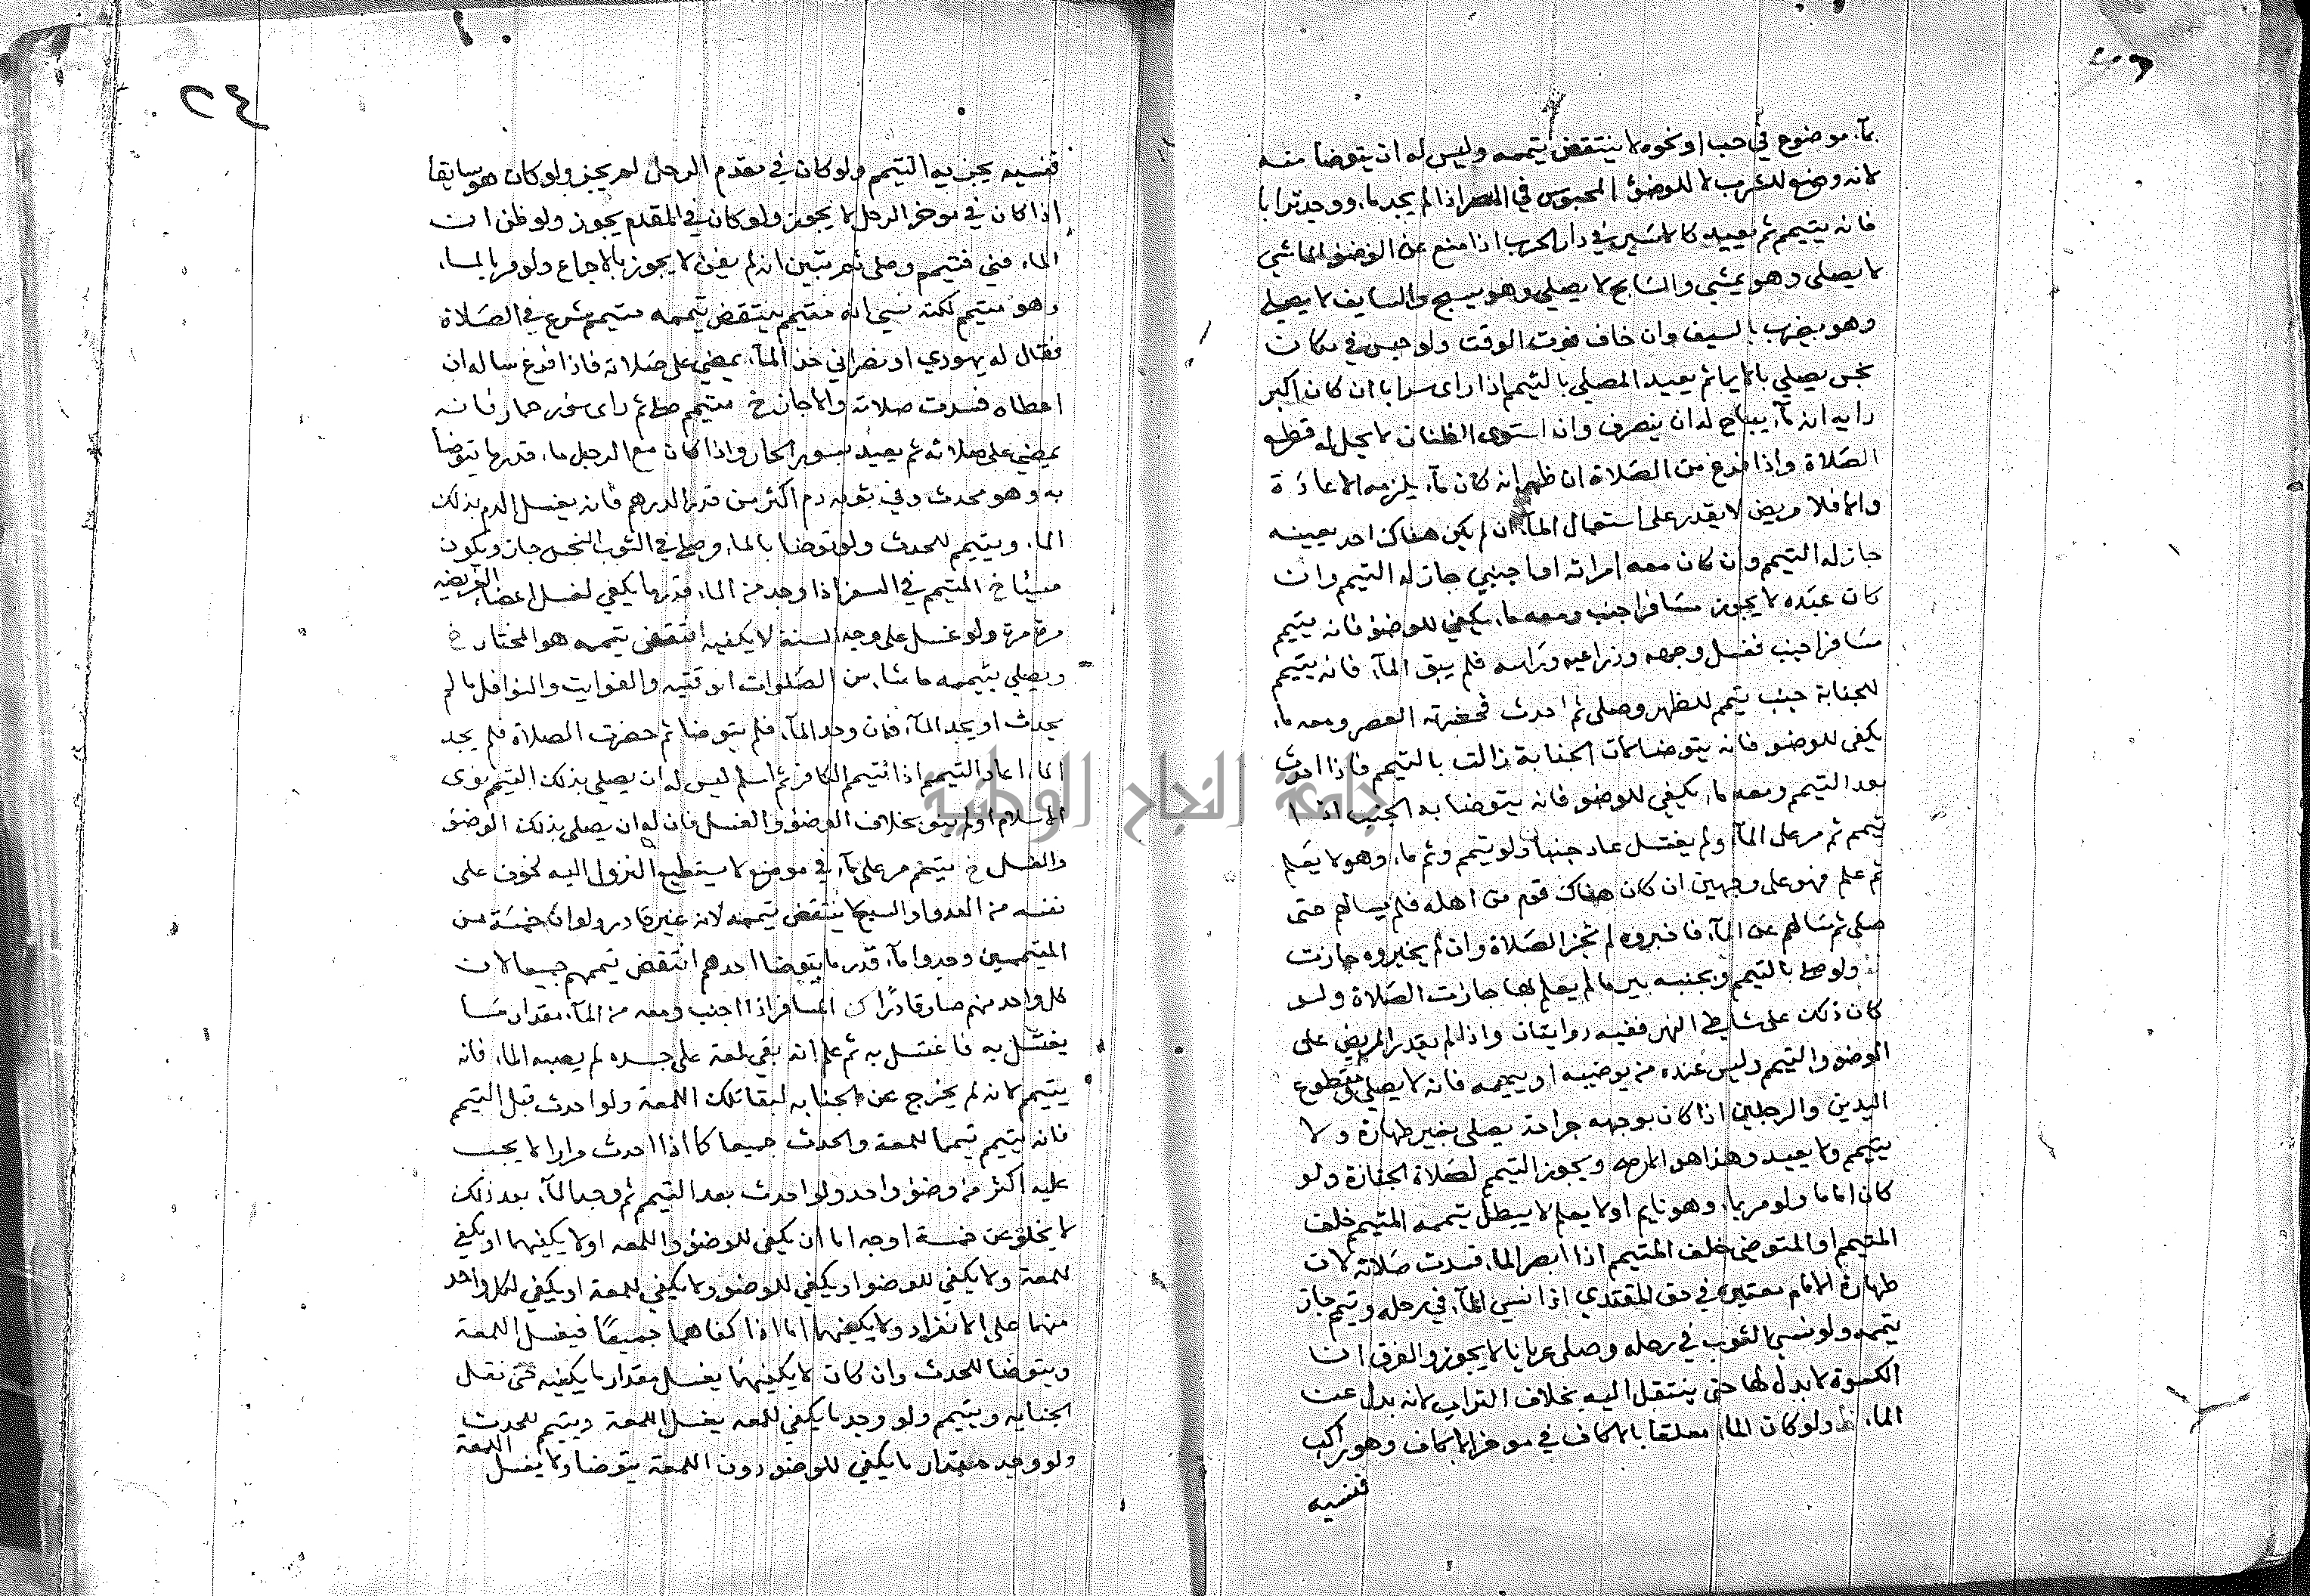 بمآء موضوع في حب او نحوه لا ينتقض تيممه وليس له ان يتوضا منه
لانه وضع للشرب لا للوضؤ المحبوس في المصر اذا لم يجد ماء ووجد ترابا
فانه يتيمم ثم يعيد كالاسير في دار الحرب اذا منع عن الوضؤ الماشي
لا يصلي وهو يمشي والسابح لا يصلي وهو يسبح والسايف لا يصلي
وهو يضرب بالسيف وان خاف فوت الوقت ولو حبس في مكان
نجس يصلي بالايما ثم يعيد المصلي بالتيمم اذا راى سرابا ان كان اكبر
رايه انه مآء يباح له ان ينصرف وان استوى الظنان لا يحل له قطع
الصلاة واذا فرغ من الصلاة ان ظهر انه كان مآء يلزمه الاعادة
والا فلا مريض لا يقدر على استعمال المآء ان لم يكن هناك احد يعينه
جاز له التيمم وان كان معه امراته او اجنبي جاز له التيمم وان
كان عبده لا يجوز مسافر اجنب ومعه ماء يكفي للوضؤ فانه يتيمم
مسافر اجنب فغسل وجهه وذراعيه وراسه فلم يبق المآء فانه يتيمم
للجنابة جنب تيمم للظهر وصلى ثم احدث فحضرته العصر ومعه ماء
يكفي للوضو فانه يتوضا لان الجنابة زالت بالتيمم فاذا احدث
بعد التيمم ومعه ماء يكفي للوضو فانه يتوضا به الجنب اذا
تيمم ثم مر على المآء ولم يغتسل عاد جنبا ولو تيمم وثم ماء وهو لا يعلم
ثم علم فهو على وجهين ان كان هناك قوم من اهله فلم يسالهم حتى
صلى ثم سالهم عن المآء فاخبروه لم تجز الصلاة وان لم يخبروه جازت
ولو صلى بالتيمم وبجنبه بير مالم يعلم بها جازت الصلاة ولو
كان ذلك على شاطئ النهر ففيه روايتان واذا لم يقدر المريض على
الوضو والتيمم وليس عنده من يوضيه او ييممه فانه لا يصلي مقطوع
اليدين والرجلين اذا كان بوجهه جراحة يصلي بغير طهارة ولا
يتيمم ولا يعيد وهذا هو الاصح ويجوز التيمم لصلاة الجنازة ولو
كان اماما ولو مر بماء وهو نايم او لا يعلم لا يبطل تيممه المتيمم خلف
المتيمم او المتوضي خلف المتيمم اذا ابصر الماء فسدت صلاته لان
طهارة الامام معتبرة في حق المقتدي اذا نسي المآء في رحله وتيمم جاز
تيممه ولو نسي الثوب في رحله وصلى عريانا لا يجوز والفرق ان
الكسوة لا بدل لها حتى ينتقل اليه بخلاف التراب لانه بدل عن
الماء ولو كان الماء معلقا بالاكاف في موخر الاكاف وهو راكب
فنسيه
٤٢
فنسيه يجزيه التيمم ولو كان في مقدم الرحل لم يجز ولو كان هو سايقا
اذا كان في موخر الرحل لا يجوز ولو كان في المقدم يجوز ولو ظن ان
الماء فني فتيمم وصلى ثم تبين انه لم يفن لا يجوز بالاجماع ولو مر بالماء
وهو متيمم لكنه نسي انه متيمم ينتقض تيممه متيمم شرع في الصلاة
فقال له يهودي او نصراني خذ المآء يمضي على صلاته فاذا فرغ ساله ان
اعطاه فسدت صلاته والا جاز خ متيمم صلى ثم راى سؤر حمار فانه
يمضي على صلاته ثم يعيد بسور الحمار واذا كان مع الرجل ماء قدر ما يتوضا
به وهو محدث وفي ثوبه دم اكثر من قدر الدرهم فانه يغسل الدم بذلك
الماء ويتيمم للحدث ولو توضا بالماء وصلى في الثوب النجس جاز ويكون
مسيئا خ المتيمم في السفر اذا وجد من الماء قدر ما يكفي لغسل اعضا الفريضه
مرة مرة ولو غسل على وجه السنة لا يكفيه انتقض تيممه هو المختار خ
ويصلي بتيممه ما شاء من الصلوات الوقتيه والفوايت والنوافل ما لم
يحدث او يجد المآء فان وجد المآء فلم يتوضا ثم حضرت الصلاة فلم يجد
الماء اعاد التيمم اذا تيمم الكافر ثم اسلم ليس له ان يصلي بذلك التيمم نوى
الاسلام او لم ينو بخلاف الوضؤ والغسل فان له ان يصلي بذلك الوضؤ
والغسل خ متيمم مر على مآء في موضع لا يستطيع النزول اليه لخوف على
نفسه من العدو او السبع لا ينتقض تيممه لانه غير قادر ولو ان خمسة من
المتيممين وجدوا مآء قدر ما يتوضا احدهم انتقض تيممهم جميعا لان
كل واحد منهم صار قادرًا المسافر اذا اجنب ومعه من المآء مقدار ما
يغتسل به فاغتسل به ثم علم انه بقي لمعة على جسده لم يصبه الماء فانه
يتيمم لانه لم يخرج عن الجنابه لبقا تلك اللمعة ولو احدث قبل التيمم
فانه يتيمم تيمما للمعة والحدث جميعا كما اذا احدث مرارا لا يجب
عليه اكثر من وضؤ واحد ولو احدث بعد التيمم ثم وجد المآء بعد ذلك
لا يخلو عن خمسة اوجه اما ان يكفي للوضؤ واللمعه او لا يكفيهما او يكفي
للمعة ولا يكفي للوضو او يكفي للوضو ولا يكفي للمعة او يكفي لكل واحد
منهما على الانفراد ولا يكفيهما اما اذا كفاهما جميعًا فيغسل اللمعة
ويتوضا للحدث وان كان لا يكفيهما يغسل مقدار ما يكفيه حتى تقل
الجنابه ويتيمم ولو وجد ما يكفي للمعه يغسل اللمعة ويتيمم للحدث
ولو وجد مقدار ما يكفي للوضو دون اللمعة يتوضا ولا يغسل اللمعة
جامعة النجاح الوطنية